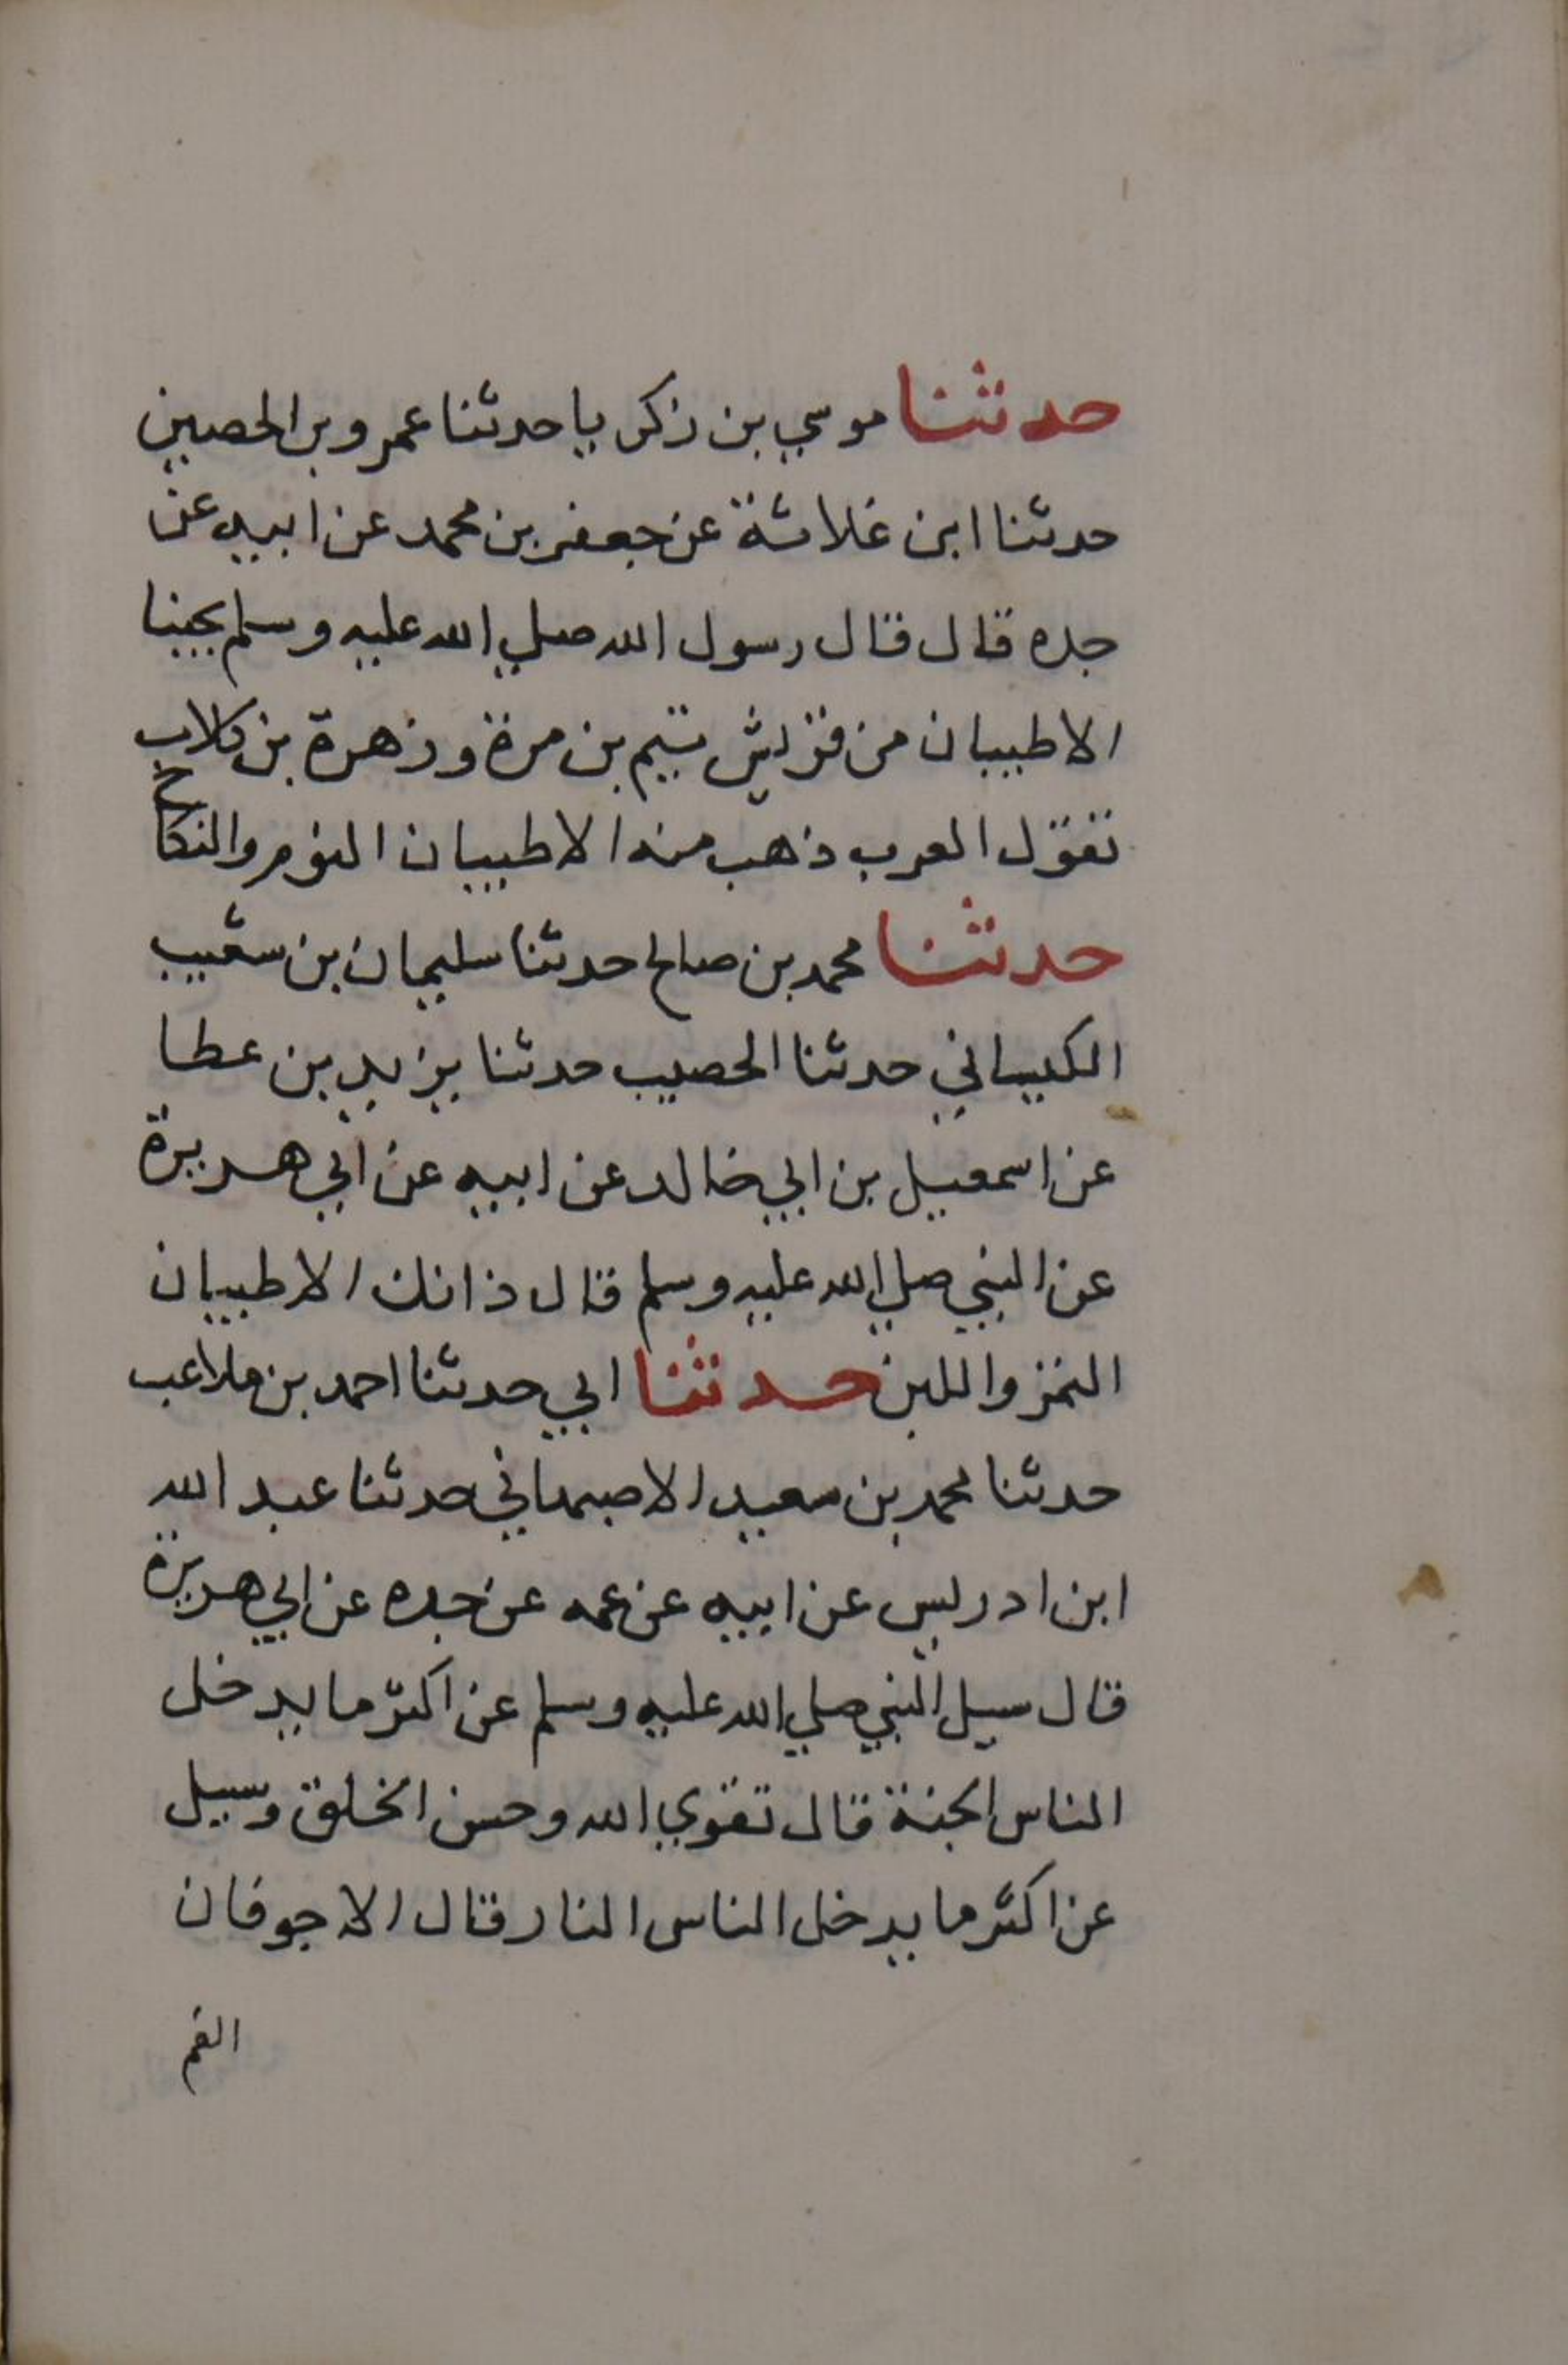 حدثنا موسي بن زكريا حدثنا عمرو بن الحصين
حدثنا ابن غلاثة عن جعفر بن محمد عن ابيه عن
جده قال قال رسول الله صلي الله عليه وسلم يحبنا
الاطيبان من قريش تيم بن مرة وزهرة بن كلاب
تقول العرب ذهب منه الاطيبان النوم والنكاح
حدثنا محمد بن صالح حدثنا سليمان بن شعيب
الكيساني حدثنا الحصيب حدثنا يزيد بن عطا
عن اسمعيل بن ابي خالد عن ابيه عن ابي هريرة
عن النبي صلي الله عليه وسلم قال ذانك الاطيبان
التمر واللبن حدثنا ابي حدثنا احمد بن ملاعب
حدثنا محمد بن سعيد الاصبهاني حدثنا عبد الله
ابن ادريس عن ابيه عن عمه عن جده عن ابي هريرة
قال سيل النبي صلي الله عليه وسلم عن اكثر ما يدخل
الناس الجنة قال تقوي الله وحسن الخلق وسيل
عن اكثر ما يدخل الناس النار قال الاجوفان
الفم